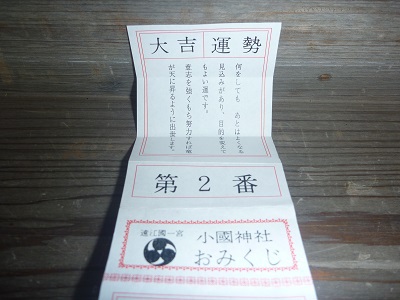 大吉 運勢
何をしても あとはよくなる
見込みがあり、目的を変えて
もよい運です。
意志を強くもち努力すれば竜
が天に昇るように出世します。
第2番
遠江國一宮
小國神社
おみくじ